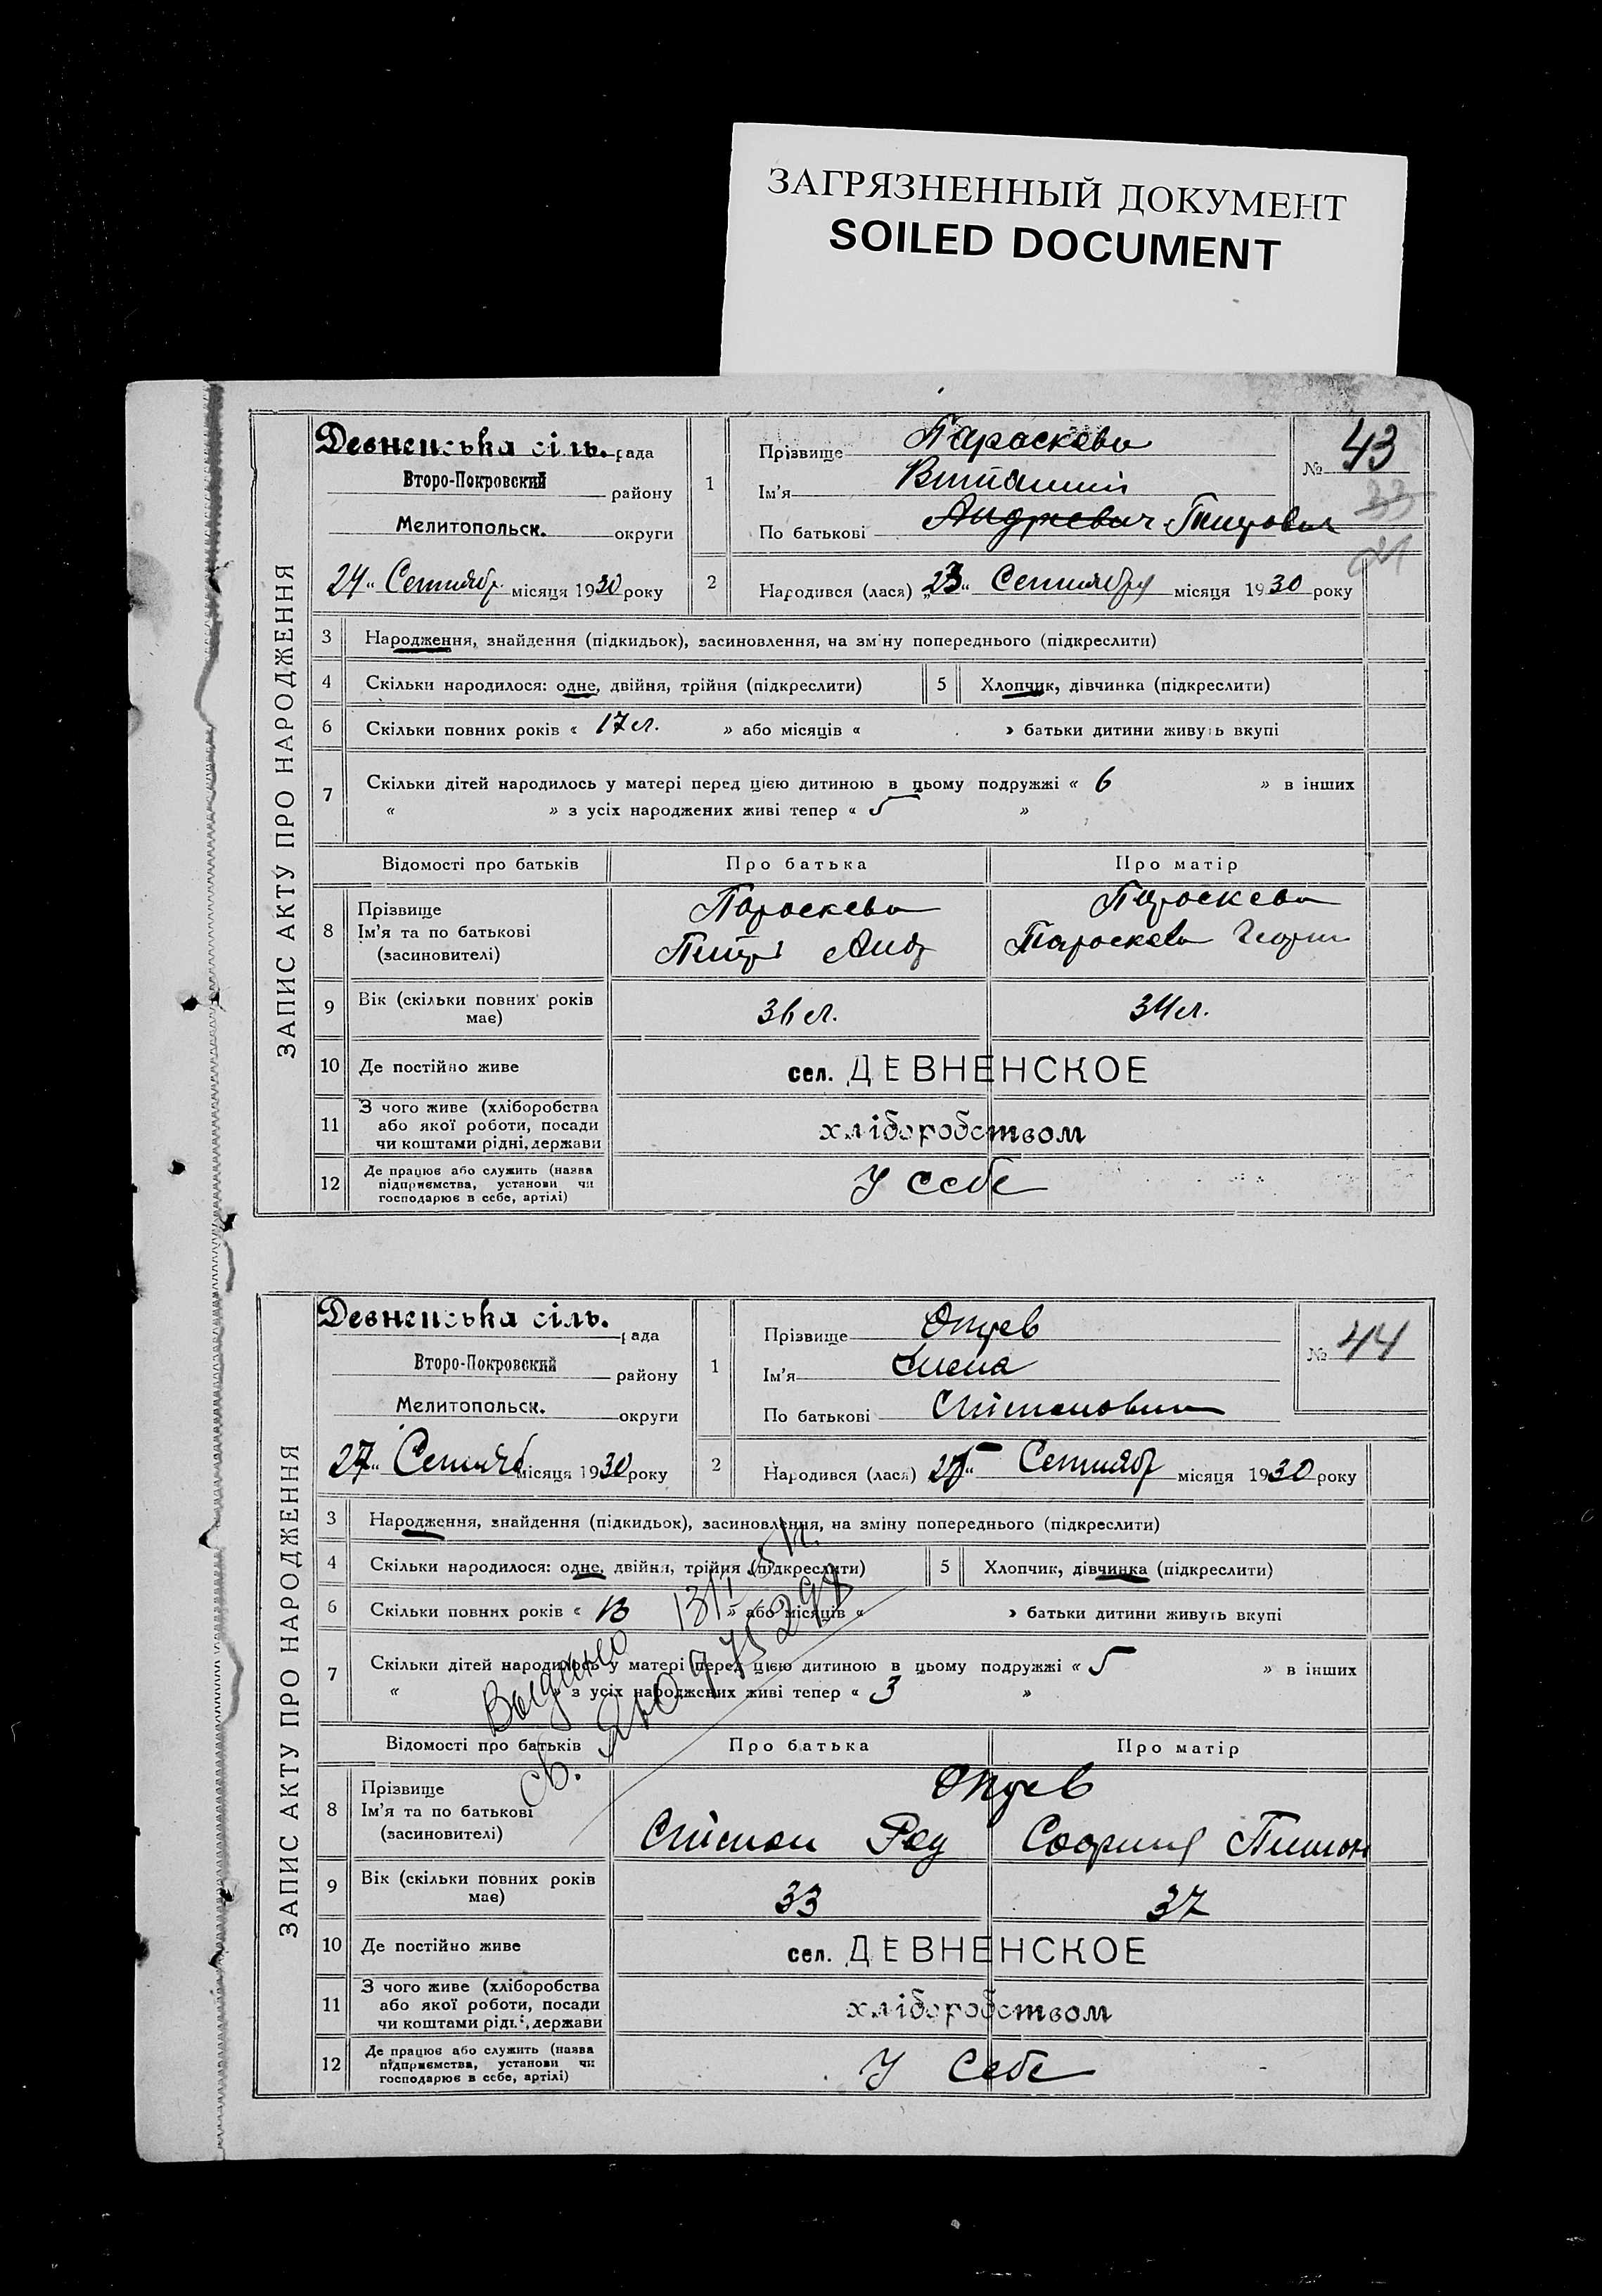 ЗАГРЯЗНЕННЫЙ ДОКУМЕНТ
SOILED DOCUMENT
ЗАПИС АКТУ ПРО НАРОДЖЕННЯ
Девненська сіль. рада
Второ-Покровский району
Мелитопольск. округи
24 " Сентябр місяця 1930 року
1 Прізвище Параскева
Ім'я
По батькові Андреевич
№ 43
33
2 Народився (лася) „23" Сентября місяця 1930 року
3 Народження, знайдення (підкидьок), засиновлення, на зміну попереднього (підкреслити)
4 Скільки народилося: одне, двійня, трійня (підкреслити) 5 Хлопчик, дівчинка (підкреслити)
6 Скільки повних років « 17 л. » або місяців « » батьки дитини живуть вкупі
7 Скільки дітей народилось у матері перед цією дитиною в цьому подружжі « 6 » в інших
« » з усіх народжених живі тепер « 5 »
Відомості про батьків Про батька Про матір
8 Прізвище Параскева Параскева
Ім'я та по батькові Анд Параскева Георги
(засиновителі)
9 Вік (скільки повних років має) 36 л. 34 л.
10 Де постійно живе сел. ДЕВНЕНСКОЕ
11 З чого живе (хліборобства
або якої роботи, посади
чи коштами рідні, держави хліборобством
12 Де працює або служить (назва
підприємства, установи чи
господарює в себе, артілі) У себе
ЗАПИС АКТУ ПРО НАРОДЖЕННЯ
Девненська сіль. рада
Второ-Покровский району
Мелитопольск. округи
27 " Сентяб місяця 1930 року
1 Прізвище
Ім'я Елена
По батькові
№ 44
2 Народився (лася) Сентябр місяця 1930 року
3 Народження, знайдення (підкидьок), засиновлення, на зміну попереднього (підкреслити)
4 Скільки народилося: одне, двійня, трійня (підкреслити) 5 Хлопчик, дівчинка (підкреслити)
6 Скільки повних років « 13 » або місяців « » батьки дитини живуть вкупі
7 Скільки дітей народилось у матері перед цією дитиною в цьому подружжі « 5 » в інших
« » з усіх народжених живі тепер « 3 »
Выдано
св.
Відомості про батьків Про батька Про матір
8 Прізвище
Ім'я та по батькові
(засиновителі)
9 Вік (скільки повних років має) 33 37
10 Де постійно живе сел. ДЕВНЕНСКОЕ
11 З чого живе (хліборобства
або якої роботи, посади
чи коштами рідні, держави хліборобством
12 Де працює або служить (назва
підприємства, установи чи
господарює в себе, артілі) У себе